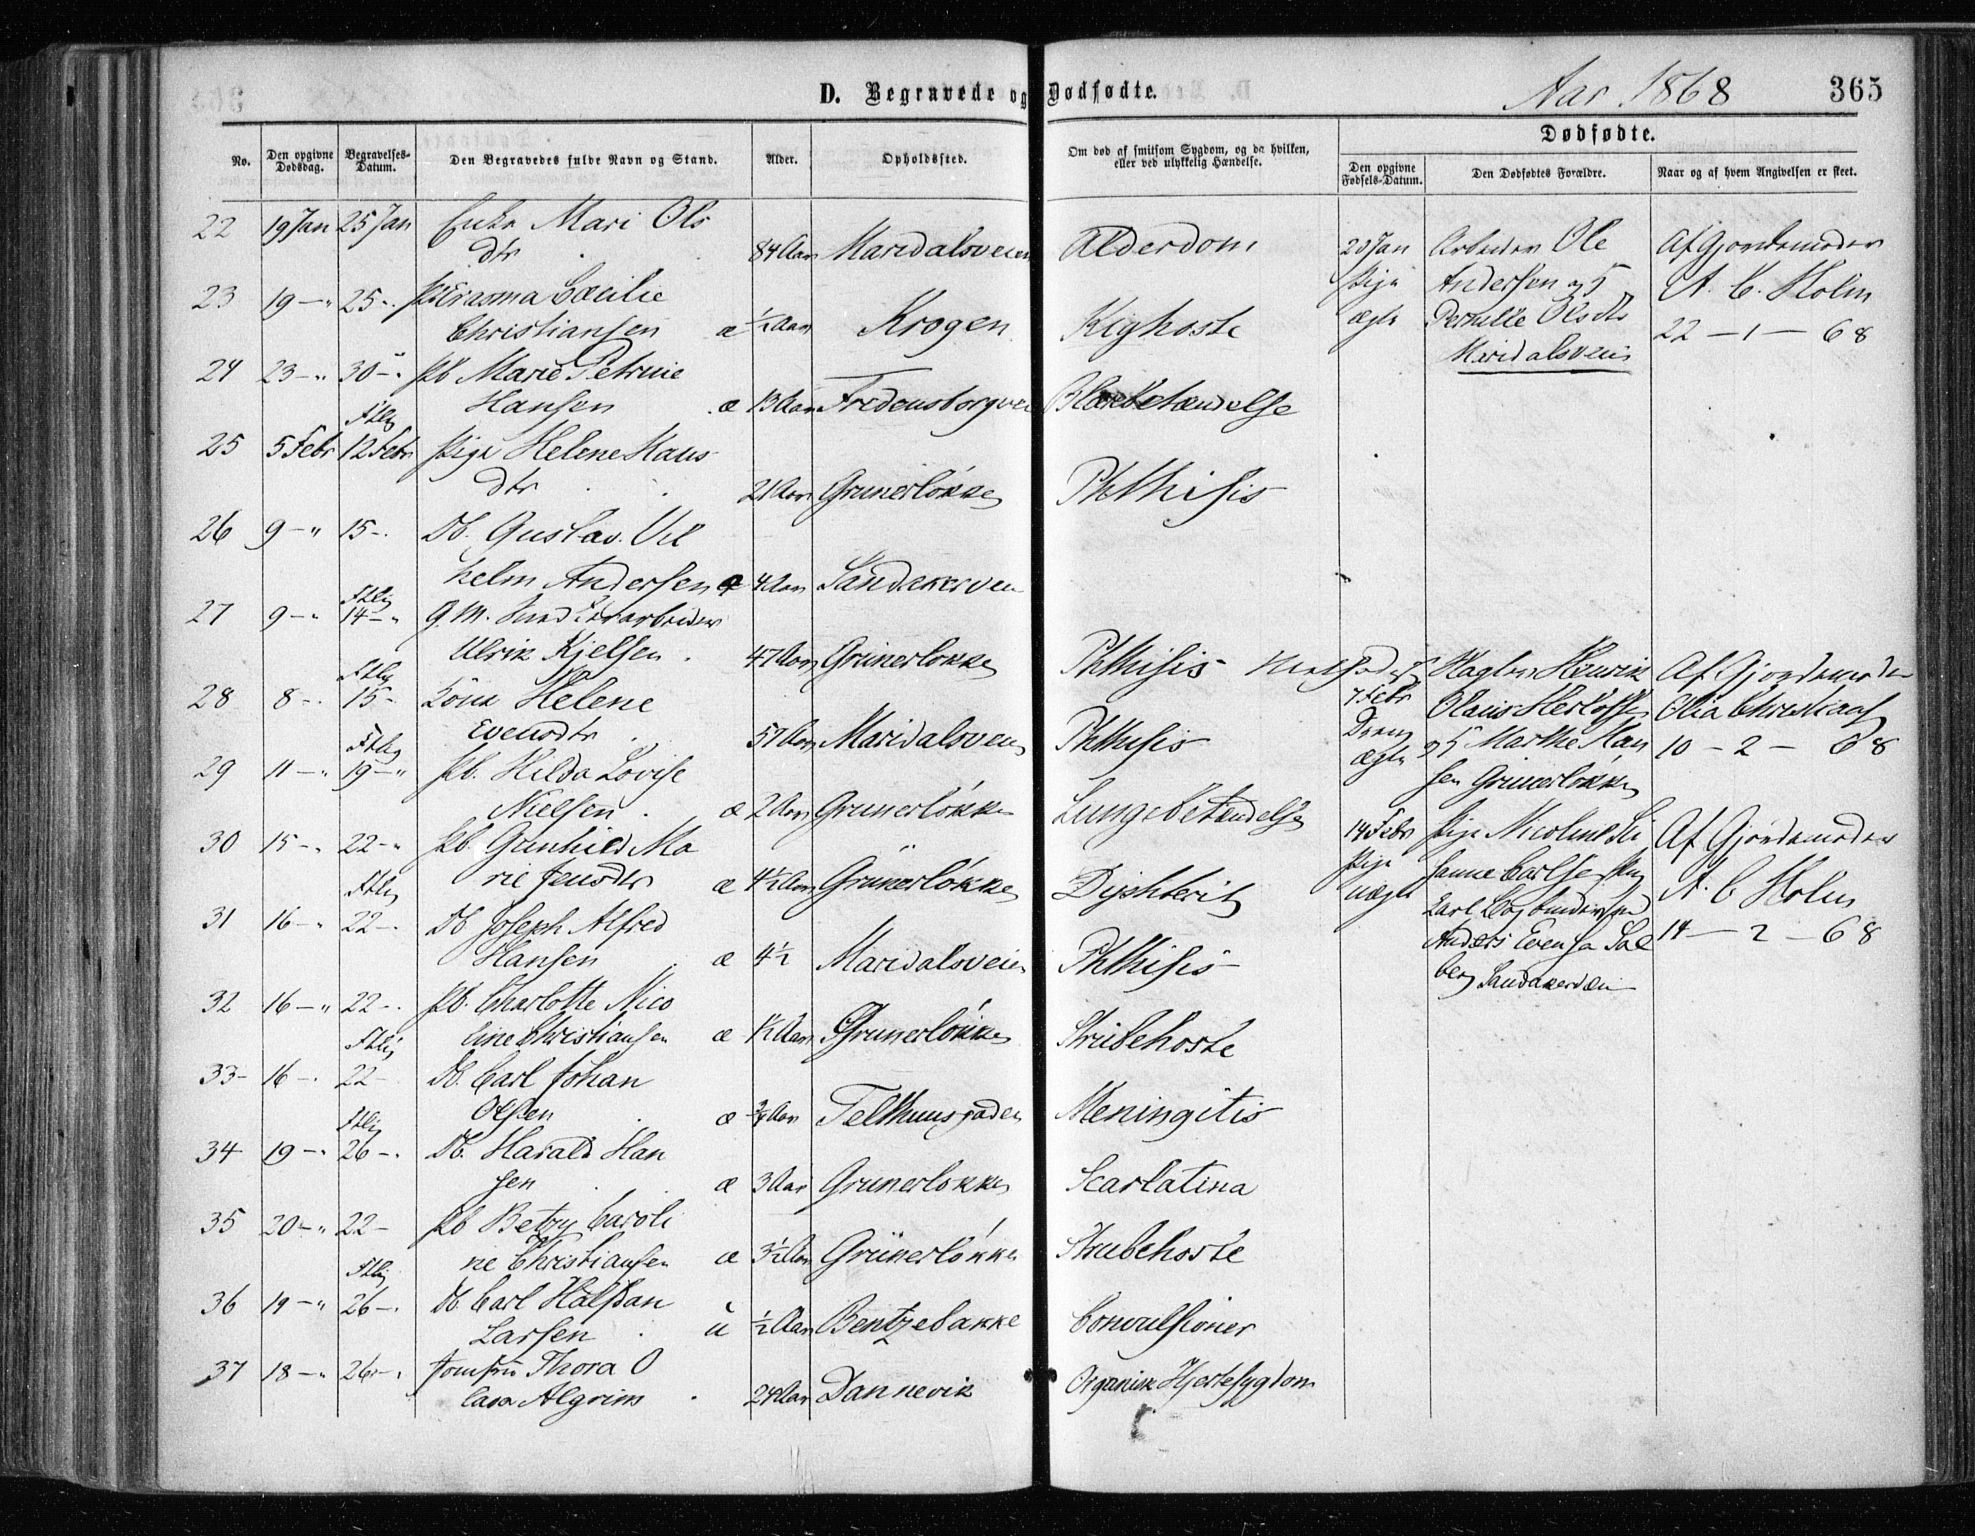 D. Begravede og Dødfødte.
Aar 1868
365
No.
Den opgivne Dødsdag.
Begravelses-Datum.
Den Begravedes fulde Navn og Stand.
Alder.
Opholdssted.
Om død af smitsom Sygdom, og da hvilken, eller ved ulykkelig Hændelse.
Dødfødte.
Den opgivne Fødsels-Datum.
Den Dødfødtes Forældre.
Naar og af hvem Angivelsen er skeet.
22 19 Jan 25 Jan Enke Mari Ols
dtr 84 Aar Maridalsveien Alderdom
23 19 — " 25 - . Pb Erasma Cæcilie
Christiansen æ ½ Aar Krogen Kighoste
24 23 - " 30 - " Pb Marie Petrine
Hansen æ 13 Aar Fredensborgvei
Fthlig
25 5 Febr 12 Febr Pige Helene Hans
dtr 21 Aar Grunerløkken Phthisis
26 9 - " 15 - . Db. Gustav Vil
helm Andersen æ 4 Aar Sandakerveien
Fthlig
27 9 - " 14 - "
Ulrik Kjelsen 47 Aar Grünerløkken Phthisis
Fthlig
28 8 - . 15 - Kone Helene
Evensdtr 57 Aar Maridalsveien Phthisis
Fthlig
29 11 - " 19 - " Pb. Hilda Lovise
Nielsen æ 2 Aar Grunerløkken Lungebetendelse
30 15 - . 22 - " Pb. Gunhild Ma
rie Jensdtr æ 4½ Aar Grünerløkken Diphterit
Fthlig
31 16 - " 22 - . Db Joseph Alfred
Hansen æ 4½ Maridalsveien Phthisis
32 16 - " 22 - . Pb. Charlotte Nico
line Christiansen æ 1½ Aar Grunerløkken Strubehoste
Fthlig
33 - 16 - . 22 - Db. Carl Johan
Olsen æ ¾ Aar Telthuusgaden Meningitis
Fthlig
34 19 - " 26 - . Db. Harald Han
sen æ 3 Aar Grunerløkken Scarlatina
35 20 - " 22 - Pb Betzy Caroli
ne Christiansen æ 3½ Aar Grünerløkken Strubehoste
Fthlig
36 19 - " 26 - . Db Carl Halfdan
Larsen u ½ Aar Bentzebakke Convulsioner
37 18 - " 26 - . Jomfru Thora O
lava Algrim 24 Aar Dannevik Organisk Hjertesygdom
20 Jan Arbeider Ole Af Gjordemoder
Pige Andersen og A. C. Holm
ægte Pernille Olsdtr 22 — 1 — 68
Maridalsveien
Henrik Af Gjordemoder
7 Febr Olaus Olia Christians
Dreng og Marthe Han 10 — 2 — 68
ægte sen Grunerløkken
14 Febr Pige Nicoline Af Gjordemoder
Pige A. C. Holm
uægte Carl
Anders Evensen Sol 14 — 2 — 68
berg Sandakerveien